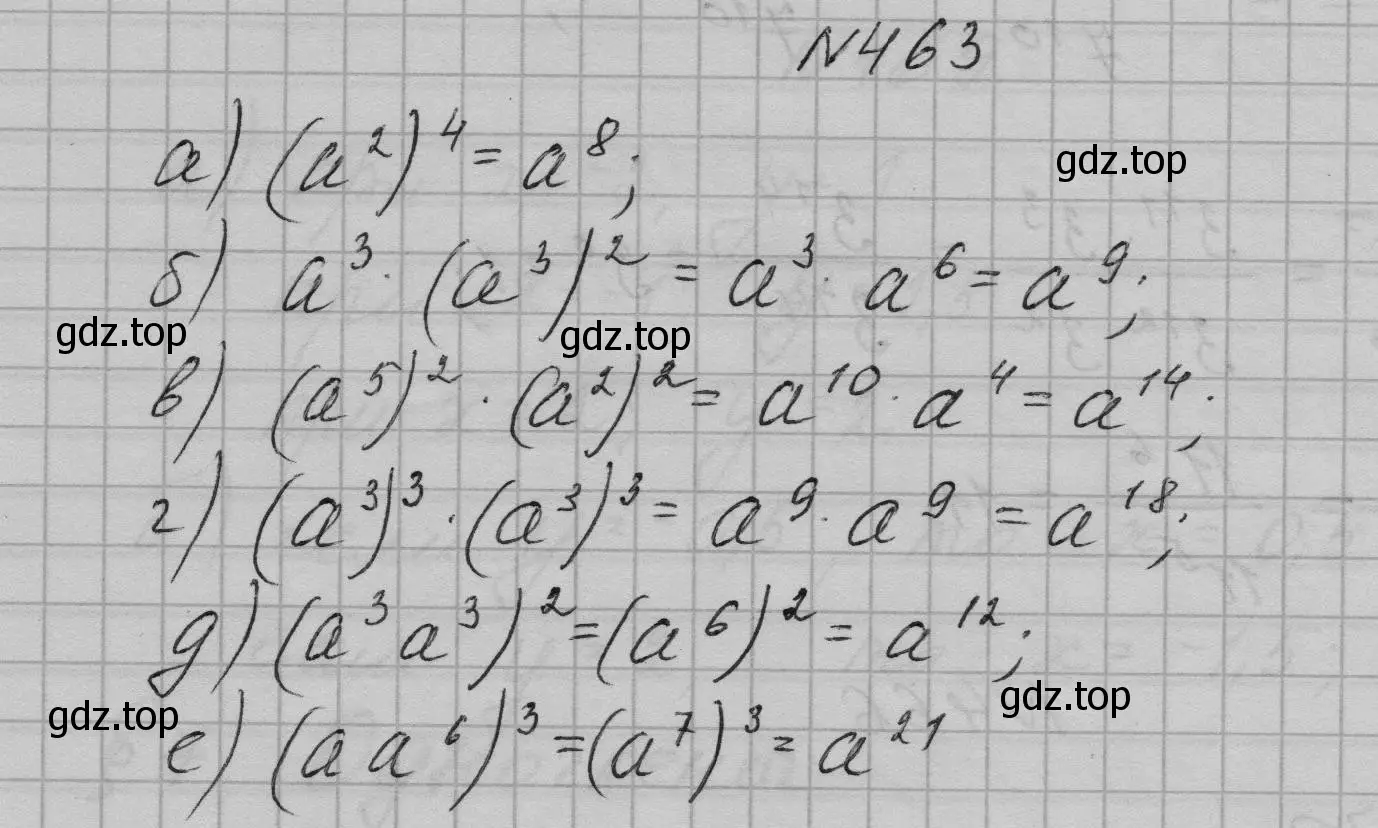 N463
а) (a²)⁴ = a⁸;
gdz.top
б) a³ · (a³)² = a³ · a⁶ = a⁹;
gdz.top gdz.top
в) (a⁵)² · (a²)² = a¹⁰ · a⁴ = a¹⁴;
г) (a³)³ · (a³)³ = a⁹ · a⁹ = a¹⁸;
д) (a³ a³)² = (a⁶)² = a¹²;
gdz.top gdz.top
е) (a a⁶)³ = (a⁷)³ = a²¹